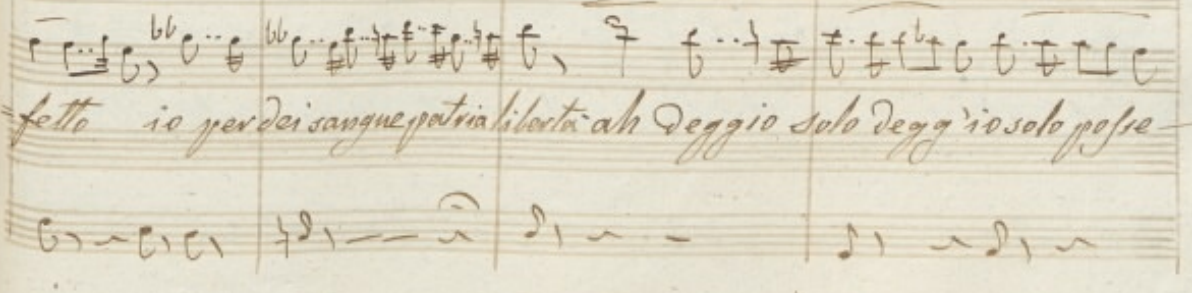 =fetto io perdei sangue patria libertà ah deggio solo degg'io solo posse-